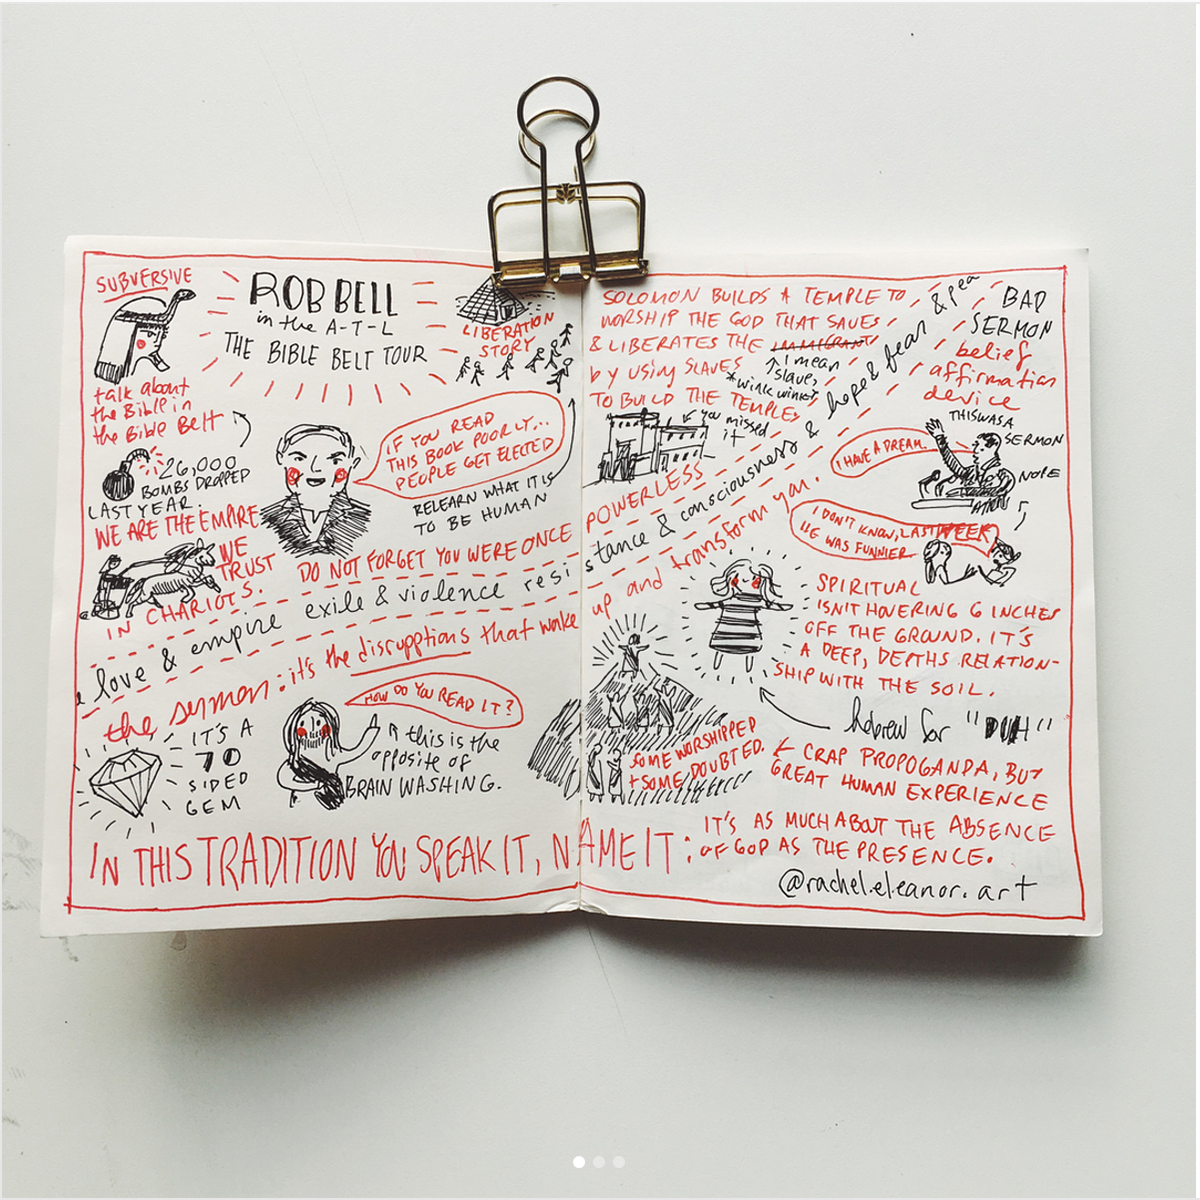 SUBVERSIVE
talk about
the Bible in
the Bible Belt
ROB BELL
in the A-T-L
THE BIBLE BELT TOUR
LIBERATION
STORY
26,000
BOMBS DROPPED
LAST YEAR.
WE ARE THE EMPIRE
WE
TRUST
IN CHARIOTS.
IF YOU READ
THIS BOOK POORLY...
PEOPLE GET ELECTED
RELEARN WHAT IT IS
TO BE HUMAN
DO NOT FORGET YOU WERE ONCE
POWERLESS
love & empire exile & violence resistance & consciousness & hope & fear & pea
the sermon: it's the disrupptions that wake up and transform you.
IT'S A
70
SIDED
GEM
HOW DO YOU READ IT?
this is the
opposite of
BRAIN WASHING.
IN THIS TRADITION YOU SPEAK IT, NAME IT:
SOLOMON BUILDS A TEMPLE TO
WORSHIP THE GOD THAT SAVES
& LIBERATES THE IMMIGRANTS
I mean
slave,
*wink wink*
by using SLAVES
TO BUILD THE TEMPLES
you missed
it
BAD
SERMON
belief
affirmation
device
THIS WAS A
SERMON
I HAVE A DREAM.
NOPE
I DON'T KNOW, LAST WEEK
HE WAS FUNNIER
SPIRITUAL
ISN'T HOVERING 6 INCHES
OFF THE GROUND. IT'S
A DEEP, DEPTHS RELATION-
SHIP WITH THE SOIL.
hebrew for "DUH"
SOME WORSHIPPED
+ SOME DOUBTED.
CRAP PROPOGANDA, BUT
GREAT HUMAN EXPERIENCE
IT'S AS MUCH ABOUT THE ABSENCE
OF GOD AS THE PRESENCE.
@rachel.eleanor.art